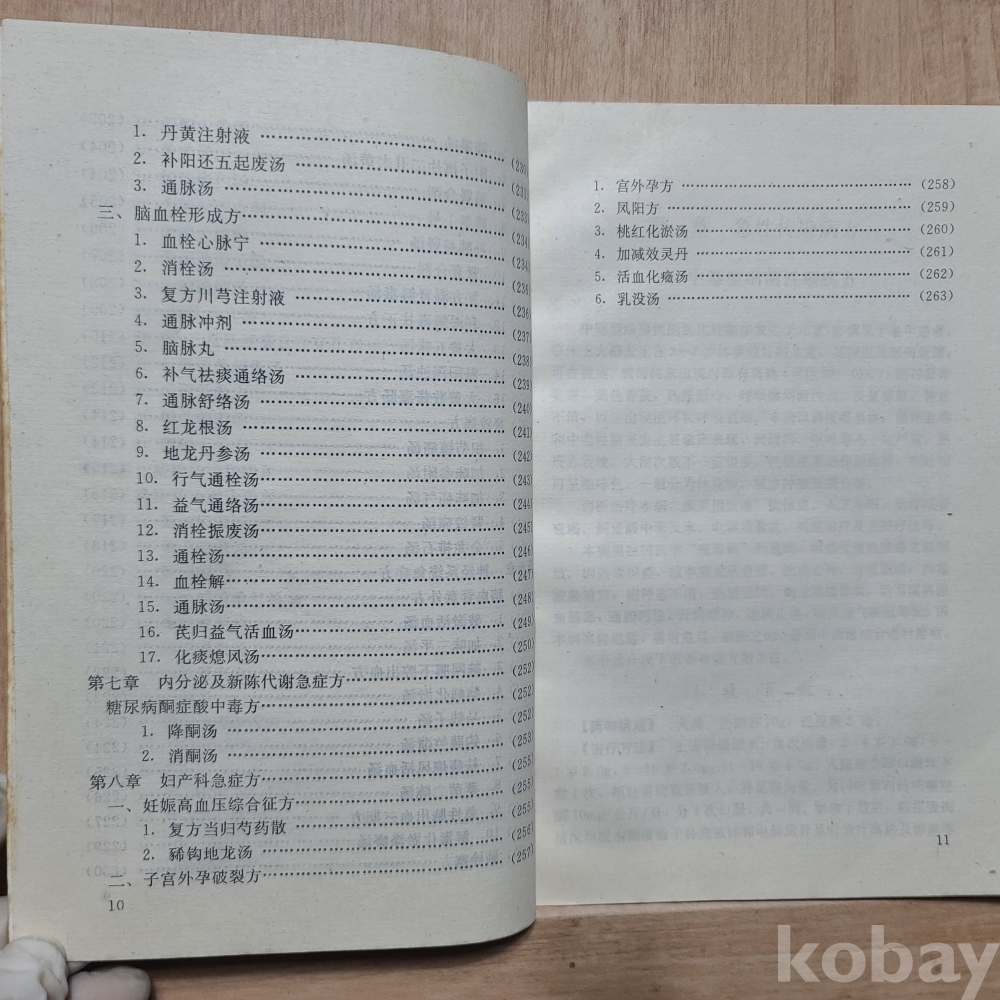 1. 丹黄注射液 ……………………(230)
2. 补阳还五起废汤 ……………………(231)
3. 通脉汤 ……………………(233)
三、脑血栓形成方 ……………………(234)
1. 血栓心脉宁 ……………………(234)
2. 消栓汤 ……………………(236)
3. 复方川芎注射液 ……………………(236)
4. 通脉冲剂 ……………………(237)
5. 脑脉丸 ……………………(238)
6. 补气祛痰通络汤 ……………………(239)
7. 通脉舒络汤 ……………………(240)
8. 红龙根汤 ……………………(241)
9. 地龙丹参汤 ……………………(242)
10. 行气通栓汤 ……………………(243)
11. 益气通络汤 ……………………(244)
12. 消栓振废汤 ……………………(245)
13. 通栓汤 ……………………(246)
14. 血栓解 ……………………(247)
15. 通脉汤 ……………………(248)
16. 芪归益气活血汤 ……………………(249)
17. 化痰熄风汤 ……………………(250)
第七章 内分泌及新陈代谢急症方 ……………………(252)
糖尿病酮症酸中毒方 ……………………(252)
1. 降酮汤 ……………………(252)
2. 消酮汤 ……………………(253)
第八章 妇产科急症方 ……………………(255)
一、妊娠高血压综合征方 ……………………(255)
1. 复方当归芍药散 ……………………(255)
2. 豨钩地龙汤 ……………………(256)
二、子宫外孕破裂方 ……………………(257)
10
1. 宫外孕方 ……………………(258)
2. 凤阳方 ……………………(259)
3. 桃红化淤汤 ……………………(260)
4. 加减效灵丹 ……………………(261)
5. 活血化癥汤 ……………………(262)
6. 乳没汤 ……………………(263)
11
kobay